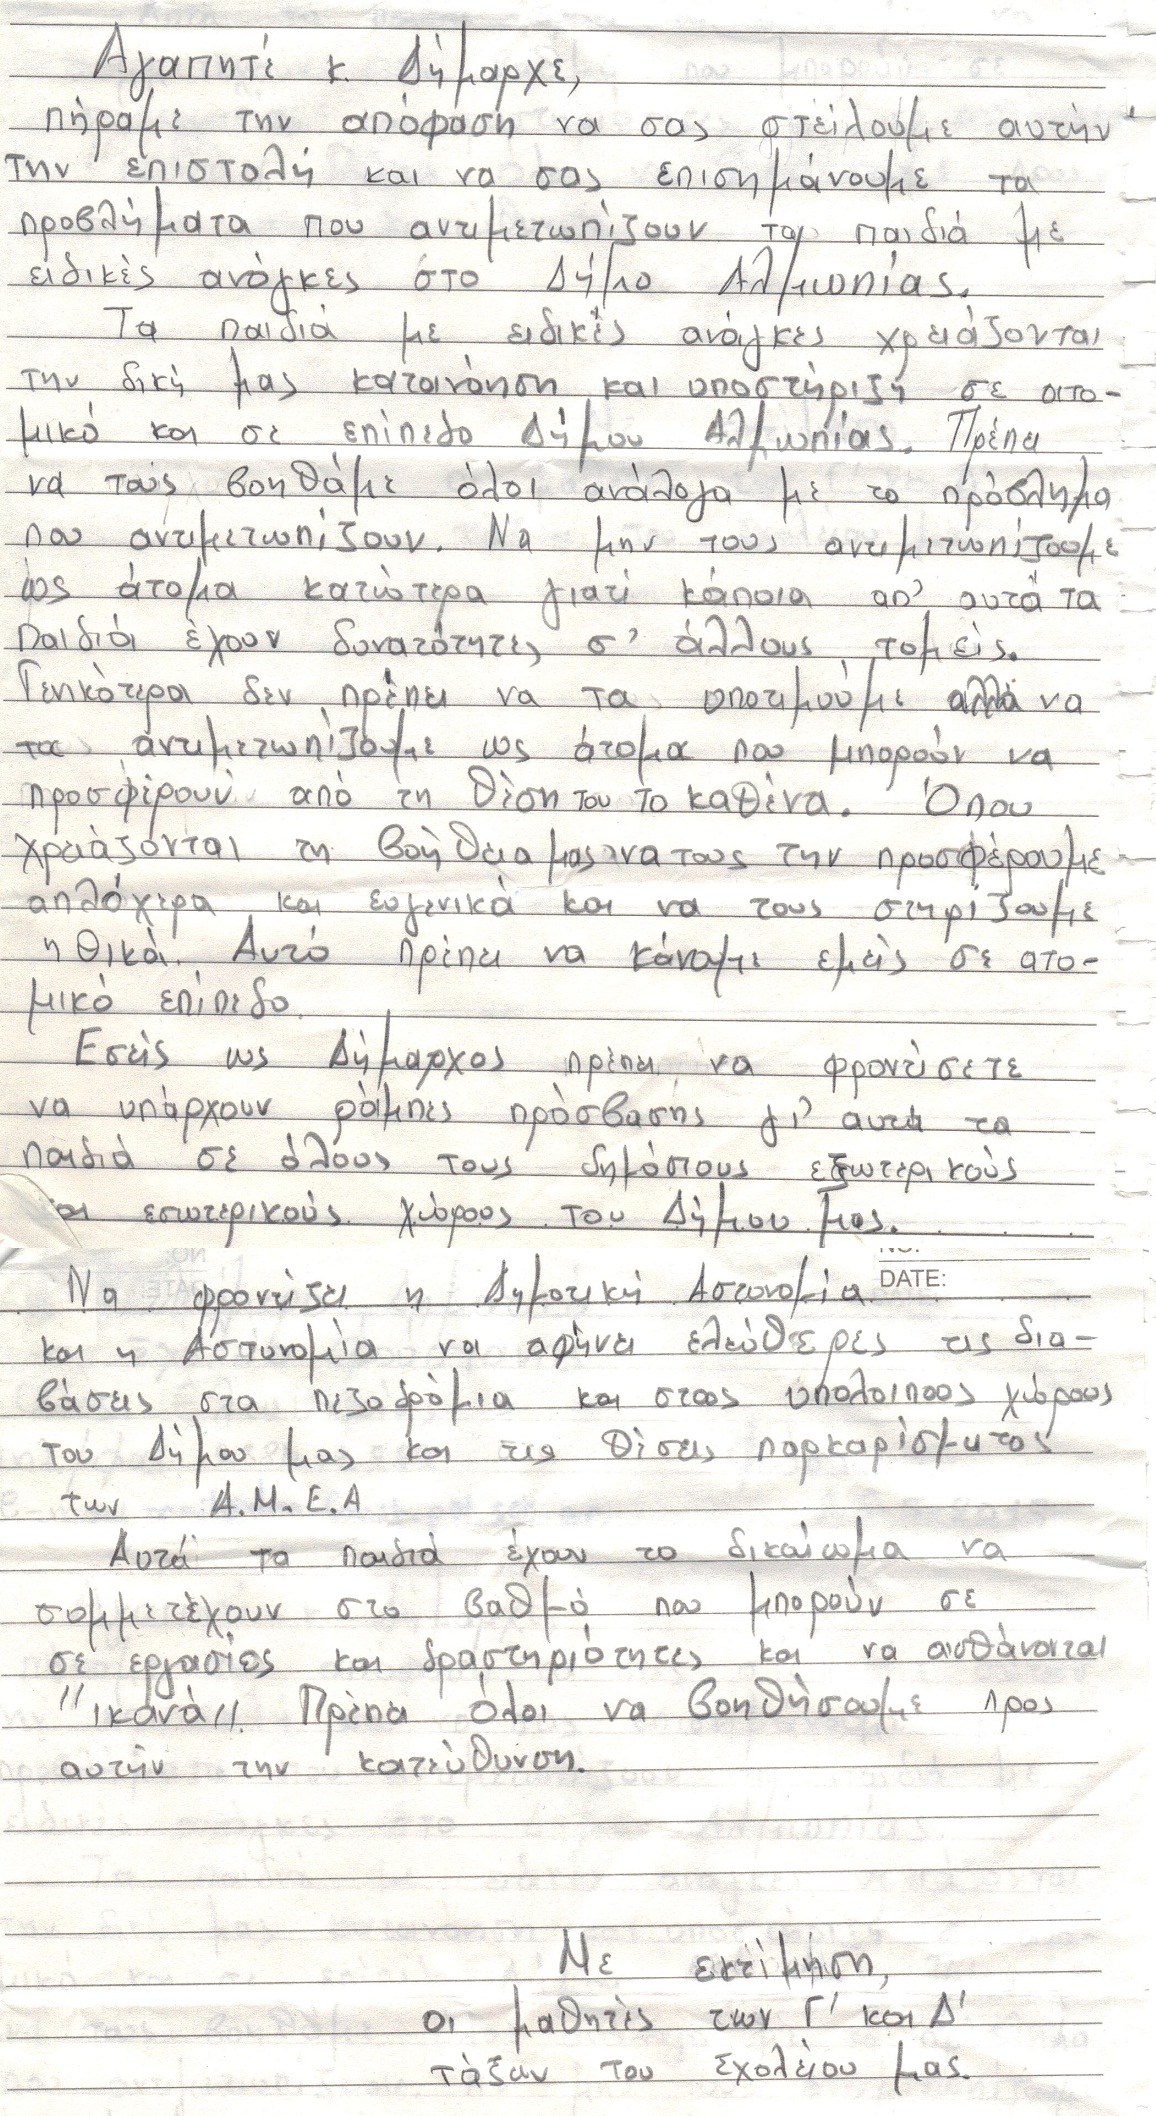 Αγαπητέ κ. Δήμαρχε,
πήραμε την απόφαση να σας στείλουμε αυτήν
την επιστολή και να σας επισημάνουμε τα
προβλήματα που αντιμετωπίζουν τα παιδιά με
ειδικές ανάγκες στο Δήμο Αλμωπίας.
Τα παιδιά με ειδικές ανάγκες χρειάζονται
την δική μας κατανόηση και υποστήριξη σε ατο-
μικό και σε επίπεδο Δήμου Αλμωπίας. Πρέπει
να τους βοηθάμε όλοι ανάλογα με το πρόβλημα
που αντιμετωπίζουν. Να μην τους αντιμετωπίζουμε
ως άτομα κατώτερα γιατί κάποια απ' αυτά τα
παιδιά έχουν δυνατότητες σ' άλλους τομείς.
Γενικότερα δεν πρέπει να τα υποτιμούμε αλλά να
τα αντιμετωπίζουμε ως άτομα που μπορούν να
προσφέρουν από τη θέση του το καθένα. Όπου
χρειάζονται τη βοήθεια μας να τους την προσφέρουμε
απλόχερα και ευγενικά και να τους στηρίζουμε
ηθικά. Αυτό πρέπει να κάναμε εμείς σε ατο-
μικό επίπεδο.
Εσείς ως Δήμαρχος πρέπει να φροντίσετε
να υπάρχουν ράμπες πρόσβασης γι' αυτά τα
παιδιά σε όλους τους δημόσιους εξωτερικούς
και εσωτερικούς χώρους του Δήμου μας.
DATE:
Να φροντίζει η Δημοτική Αστυνομία
και η Αστυνομία να αφήνει ελεύθερες τις δια-
βάσεις στα πεζοδρόμια και στους υπόλοιπους χώρους
του Δήμου μας και τις θέσεις παρκαρίσματος
των Α.Μ.Ε.Α
Αυτά τα παιδιά έχουν το δικαίωμα να
συμμετέχουν στο βαθμό που μπορούν σε
σε εργασίες και δραστηριότητες και να αισθάνονται
"ικανά". Πρέπει όλοι να βοηθήσουμε προς
αυτήν την κατεύθυνση.
Με εκτίμηση,
οι μαθητές των Γ' και Δ'
τάξεων του σχολείου μας.